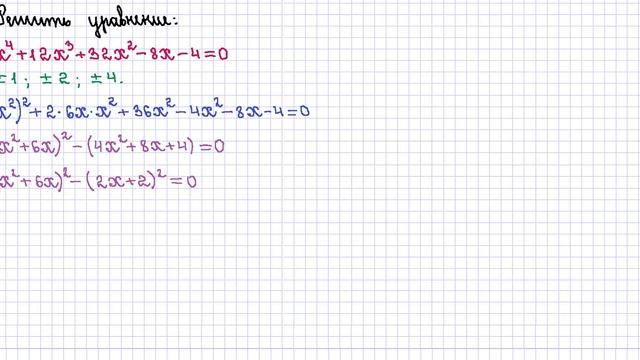 Решить уравнение:
x⁴+12x³+32x²-8x-4=0
±1; ±2; ±4.
x²)²+2·6x·x²+36x²-4x²-8x-4=0
x²+6x)²-(4x²+8x+4)=0
x²+6x)²-(2x+2)²=0